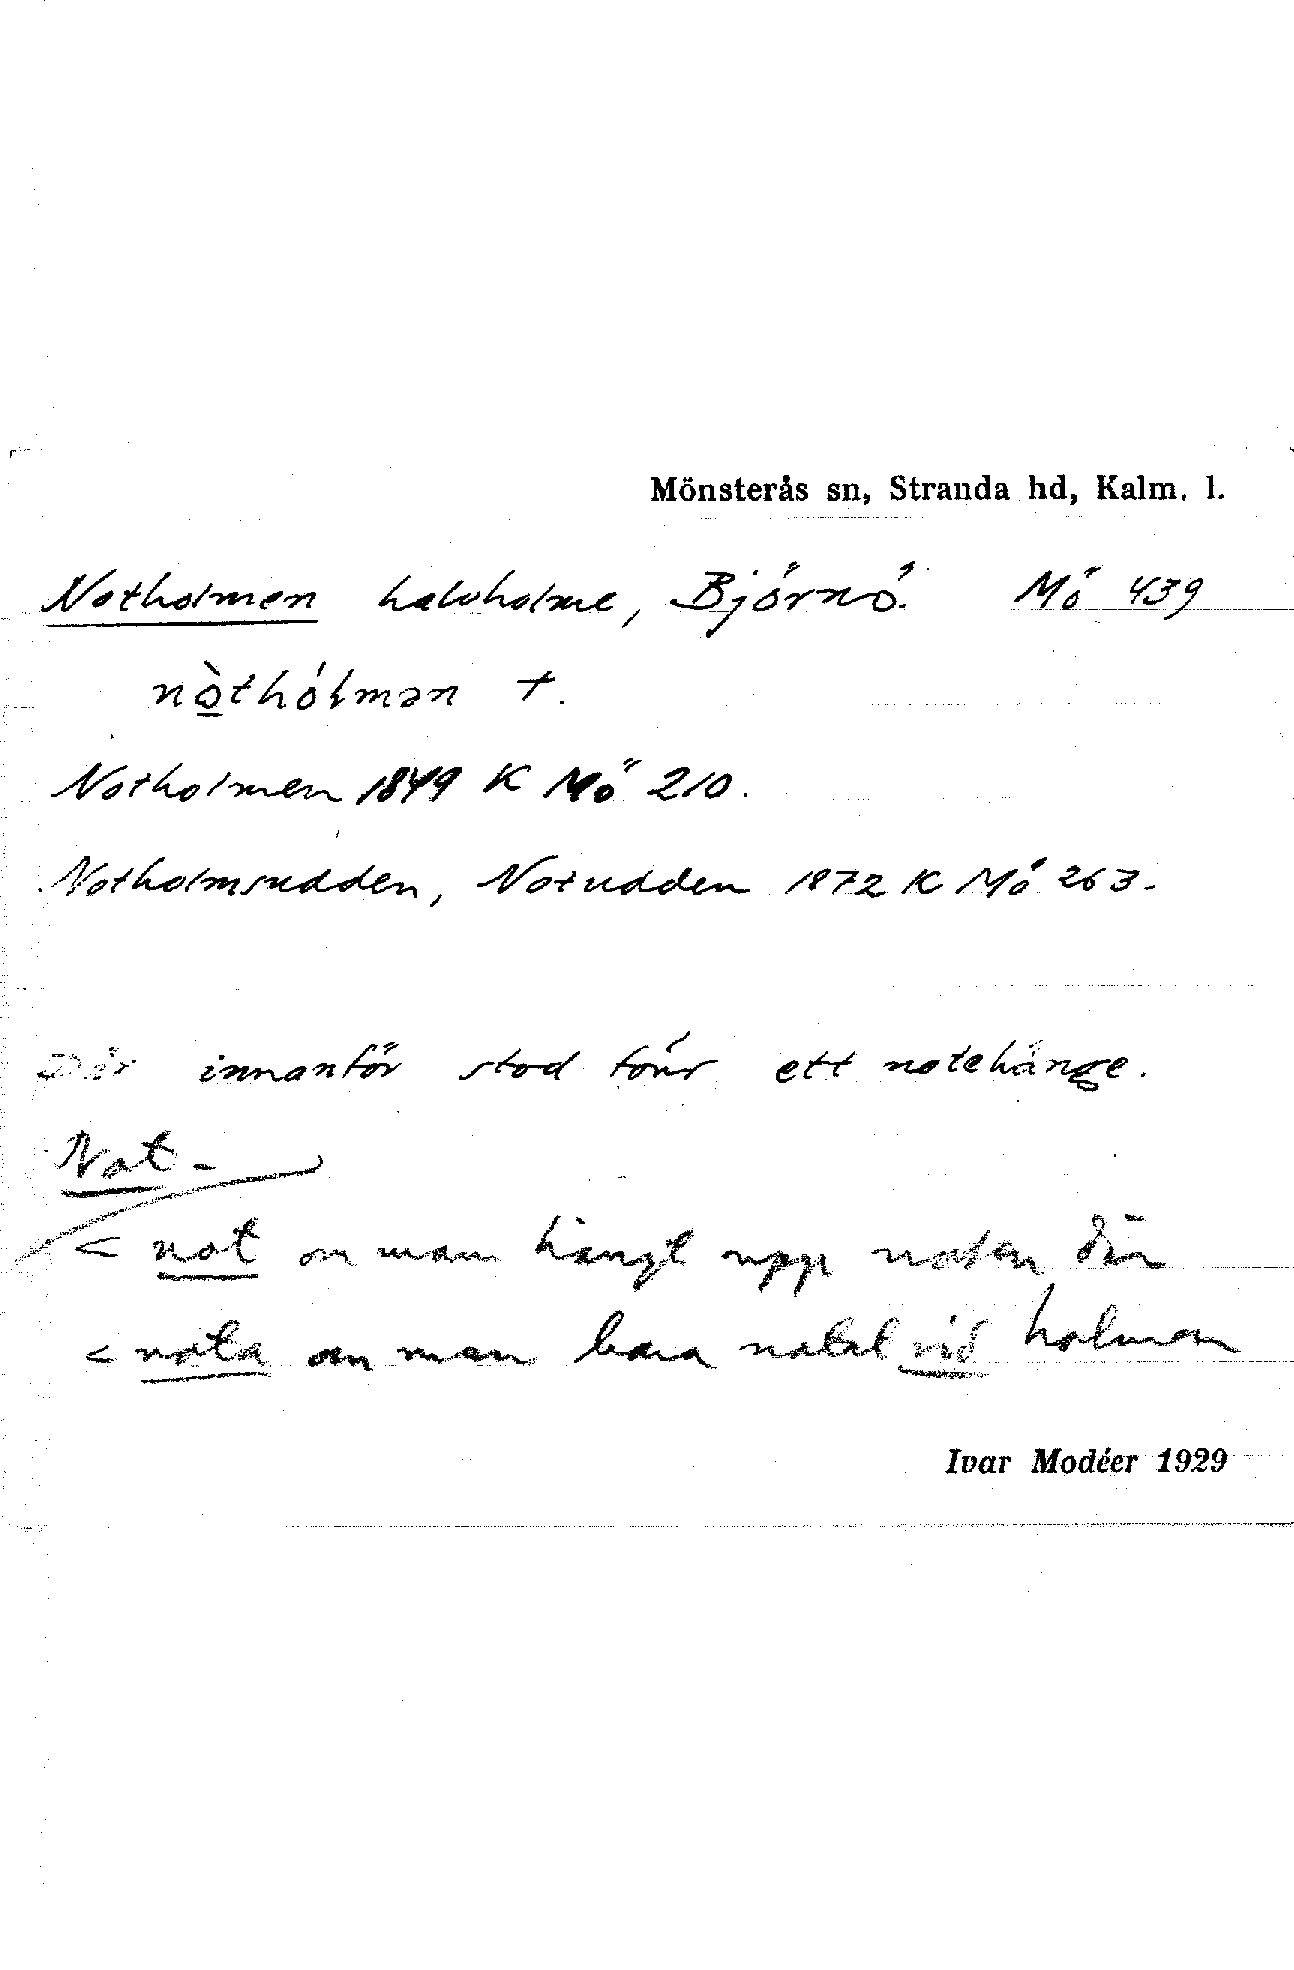 Mönsterås sn, Stranda hd, Kalm. l.
Notholmen halvholme, Björnö. Mö 439
nò̠thólmən +.
Notholmen 1849 K Mö 210.
Notholmsudden, Notudden 1872 K Mö 263.
Där innanför stod förr ett notehänge.
Not-
< not om man hängt upp noten där
< nota om man bara notat vid holmen
Ivar Modéer 1929